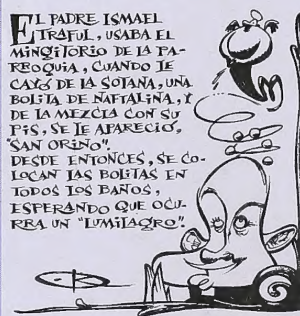 EL PADRE ISMAEL
TRAFUL, USABA EL
MINGITORIO DE LA PA-
RROQUIA, CUANDO LE
CAYÓ DE LA SOTANA, UNA
BOLITA DE NAFTALINA, Y
DE LA MEZCLA CON SU
PIS, SE LE APARECIÓ,
"SAN ORINO".
DESDE ENTONCES, SE CO-
LOCAN LAS BOLITAS EN
TODOS LOS BAÑOS,
ESPERANDO QUE OCU-
RRA UN "LUMILAGRO".